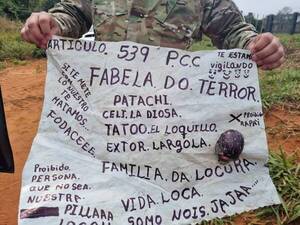 ARTICULO. 539 PCC
FABELA. DO. TERROR.
TE ESTAMOS
vigilando
PATACHI.
CELT. LA DIOSA.
TATOO. EL LOQUILLO.
EXTOR. LARGOLA.
SI. TE METE
CON
LO NUESTRO
TE
MATAMOS...
FODACEEE.
X PROHIBIDO
RAPAI
FAMILIA. DA LOCURA.
Prohibido.
PERSONA.
QUE NO SEA.
NUESTRA.
VIDA. LOCA.
PILLARA
SOMO NOIS. JAJAA...